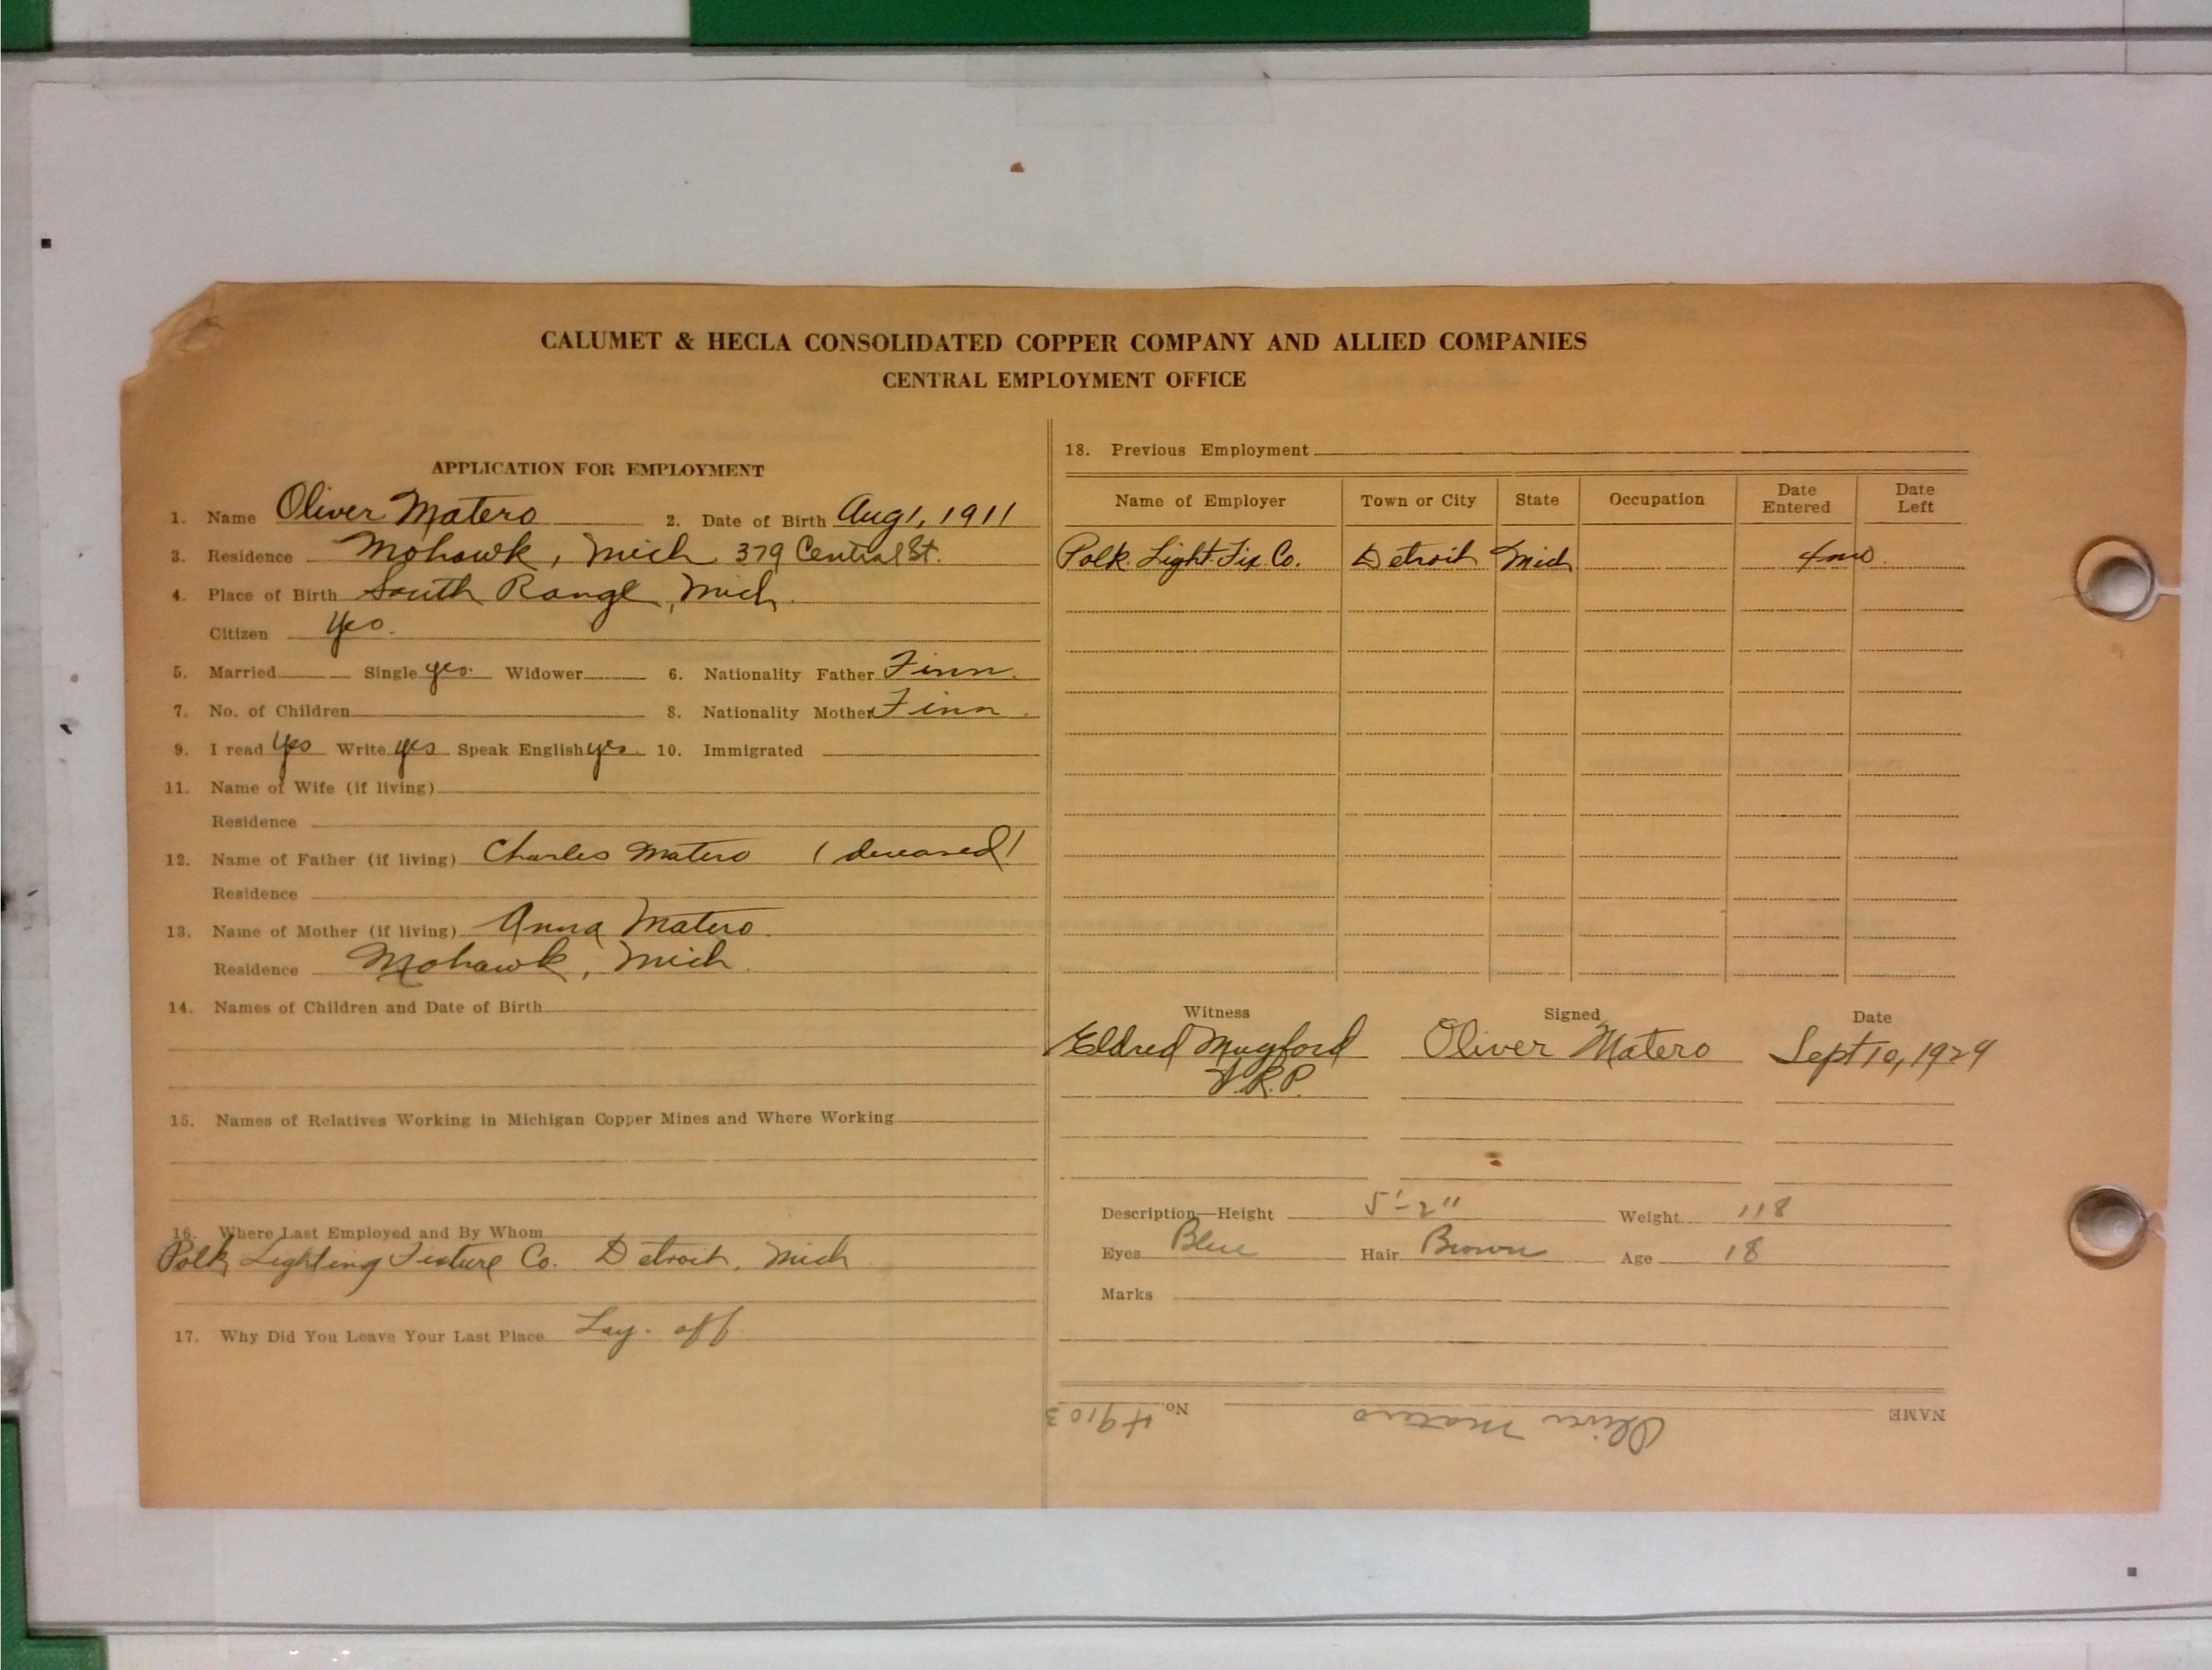 CALUMET & HECLA CONSOLIDATED COPPER COMPANY AND ALLIED COMPANIES
CENTRAL EMPLOYMENT OFFICE
APPLICATION FOR EMPLOYMENT
1. Name Oliver Matero 2. Date of Birth Aug 1, 1911
3. Residence Mohawk, Mich 379 Central St.
4. Place of Birth South Range, Mich.
Citizen Yes.
5. Married Single yes. Widower 6. Nationality Father Finn.
7. No. of Children 8. Nationality Mother Finn.
9. I read Yes Write yes Speak English yes. 10. Immigrated
11. Name of Wife (if living)
Residence
12. Name of Father (if living) Charles Matero (deceased)
Residence
13. Name of Mother (if living) Anna Matero.
Residence Mohawk, Mich.
14. Names of Children and Date of Birth
15. Names of Relatives Working in Michigan Copper Mines and Where Working
16. Where Last Employed and By Whom
Polk Lighting Fixture Co. Detroit, Mich
17. Why Did You Leave Your Last Place Lay-off
18. Previous Employment
Name of Employer Town or City State Occupation Date Entered Date Left
Polk. Light. Fix. Co. Detroit Mich 4 mo.
Witness Signed Date
Eldred Mugford Oliver Matero Sept 10, 1929
V.R.P.
Description—Height 5'-2" Weight 118
Eyes Blue Hair Brown Age 18
Marks
NAME Oliver Matero No. 49103